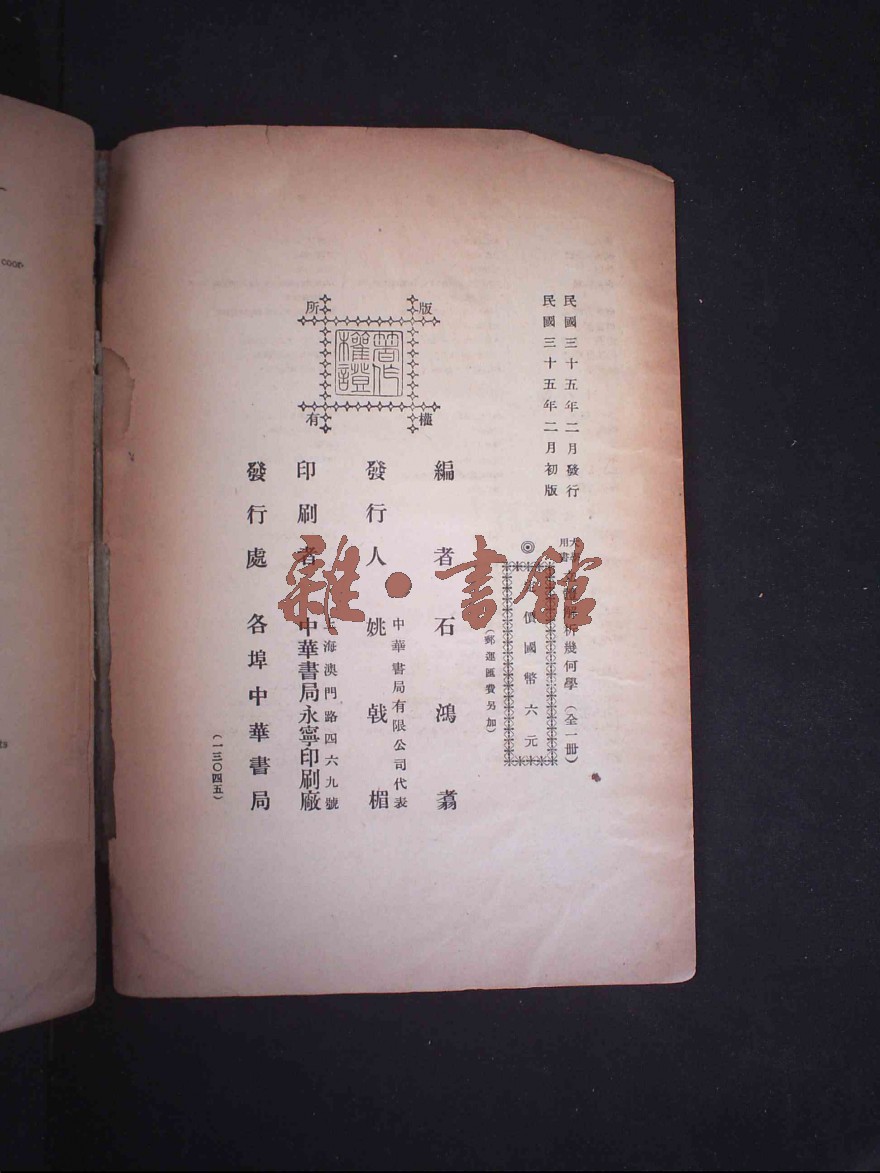 民國三十五年二月發行
民國三十五年二月初版
大學用書 立體解析幾何學（全一冊）
◎ 定價國幣六元
（郵運匯費另加）
編者 石鴻翥
中華書局有限公司代表
發行人 姚戟楣
上海澳門路四六九號
印刷者 中華書局永寧印刷廠
發行處 各埠中華書局
（一三〇四五）
版權所有
著作權證
雜·書館
coor-
ts